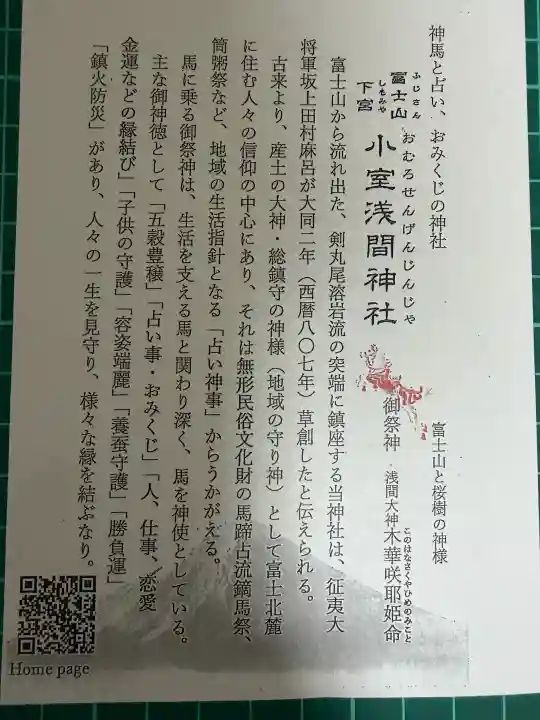 神馬と占い、おみくじの神社
富士山と桜樹の神様
ふじさん
富士山
しもみや
下宮
おむろせんげんじんじゃ
小室浅間神社
御祭神 浅間大神木華咲耶姫命
このはなさくやひめのみこと
富士山から流れ出た、剣丸尾溶岩流の突端に鎮座する当神社は、征夷大
将軍坂上田村麻呂が大同二年（西暦八〇七年）草創したと伝えられる。
古来より、産土の大神・総鎮守の神様（地域の守り神）として富士北麓
に住む人々の信仰の中心にあり、それは無形民俗文化財の馬蹄占流鏑馬祭、
筒粥祭など、地域の生活指針となる「占い神事」からうかがえる。
馬に乗る御祭神は、生活を支える馬と関わり深く、馬を神使としている。
主な御神徳として「五穀豊穣」「占い事・おみくじ」「人、仕事、恋愛
金運などの縁結び」「子供の守護」「容姿端麗」「養蚕守護」「勝負運」
「鎮火防災」があり、人々の一生を見守り、様々な縁を結ぶなり。
Home page